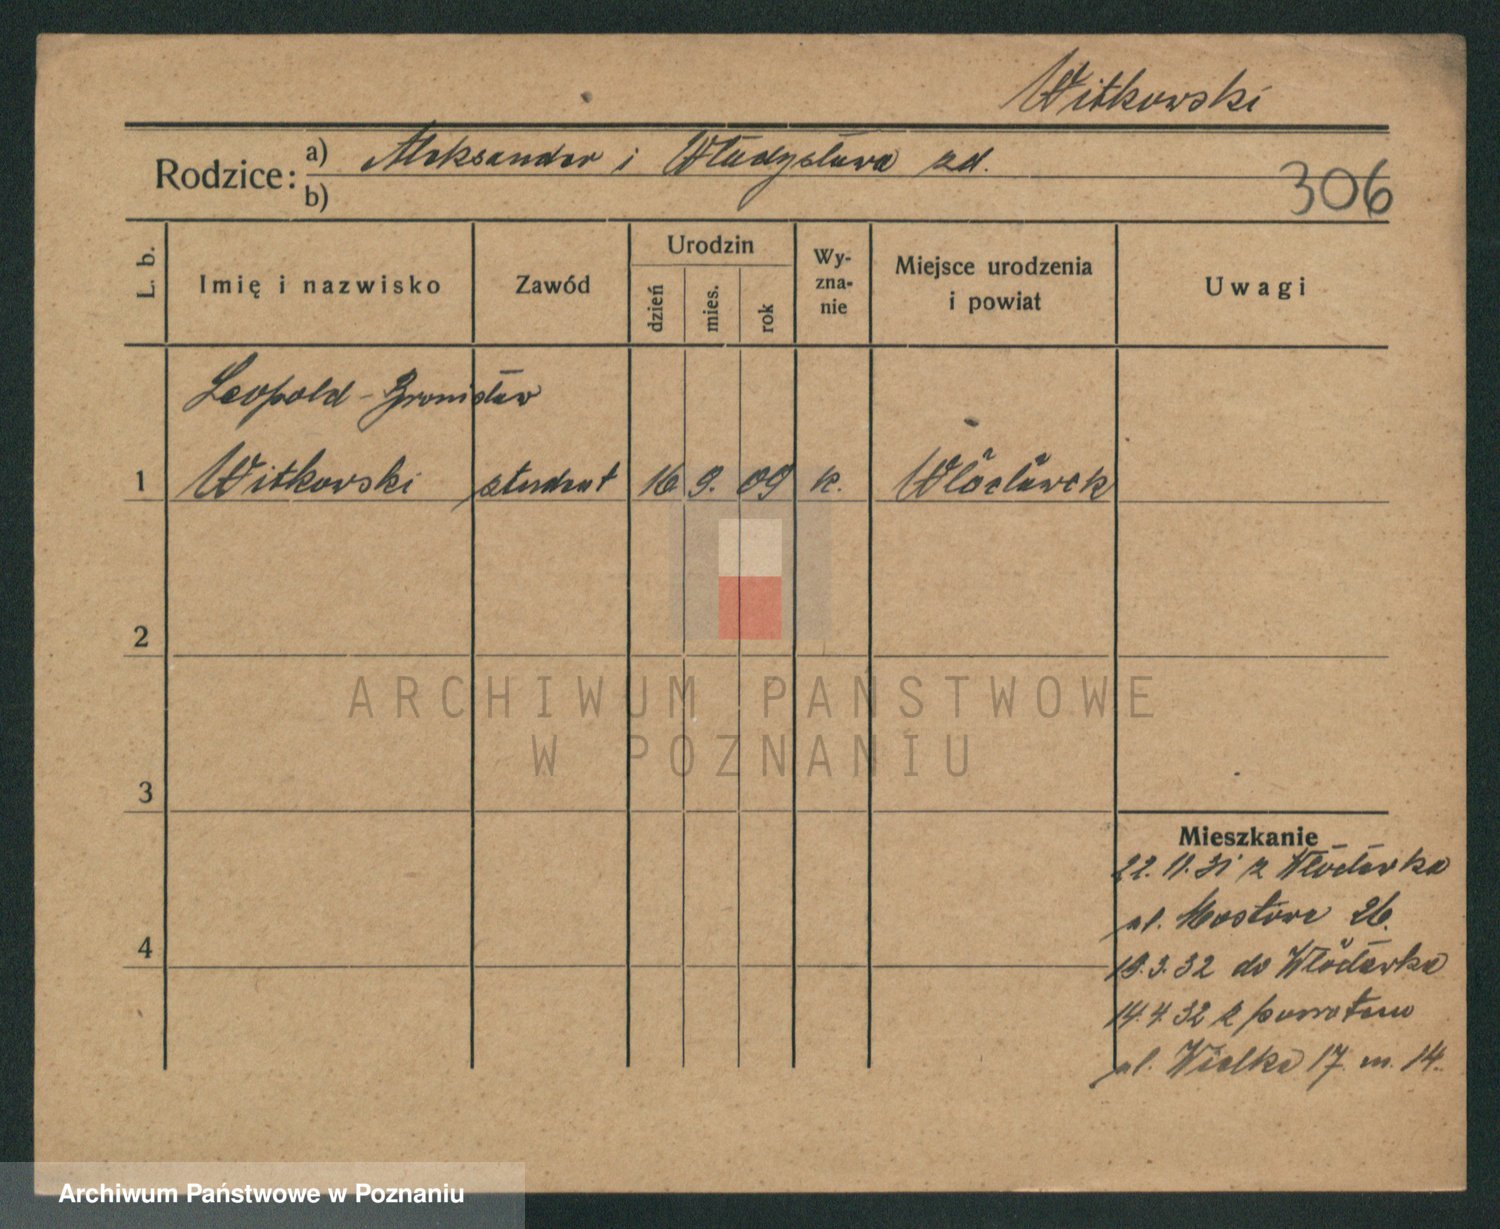 Witkowski
Rodzice: a) Aleksander i Władysława zd.
b)
306
L. b.
Imię i nazwisko
Zawód
Urodzin
dzień
mies.
rok
Wy-
zna-
nie
Miejsce urodzenia
i powiat
Uwagi
Leopold-Bronisław
1 Witkowski student 16 9. 09 k. Włocławek
2
ARCHIWUM PAŃSTWOWE
W POZNANIU
3
Mieszkanie
22.11.31 z Włocławka
ul. Mostowa 26.
4
do Włocławka
14.4.32 z powrotem
ul. Wielka 17. m. 14.
Archiwum Państwowe w Poznaniu